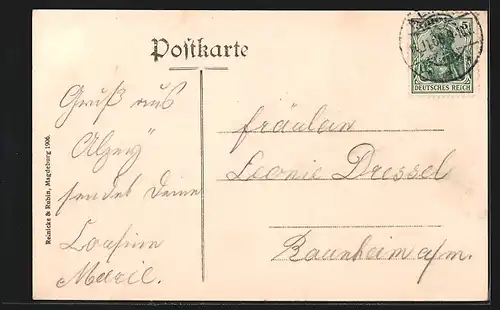 Postkarte
5
DEUTSCHES REICH
Gruß aus
Alzey
sendet Deine
Cousine
Marie.
Fräulein
Leonie Dressel
Raunheim a/m.
Reinicke & Rubin, Magdeburg 1906.